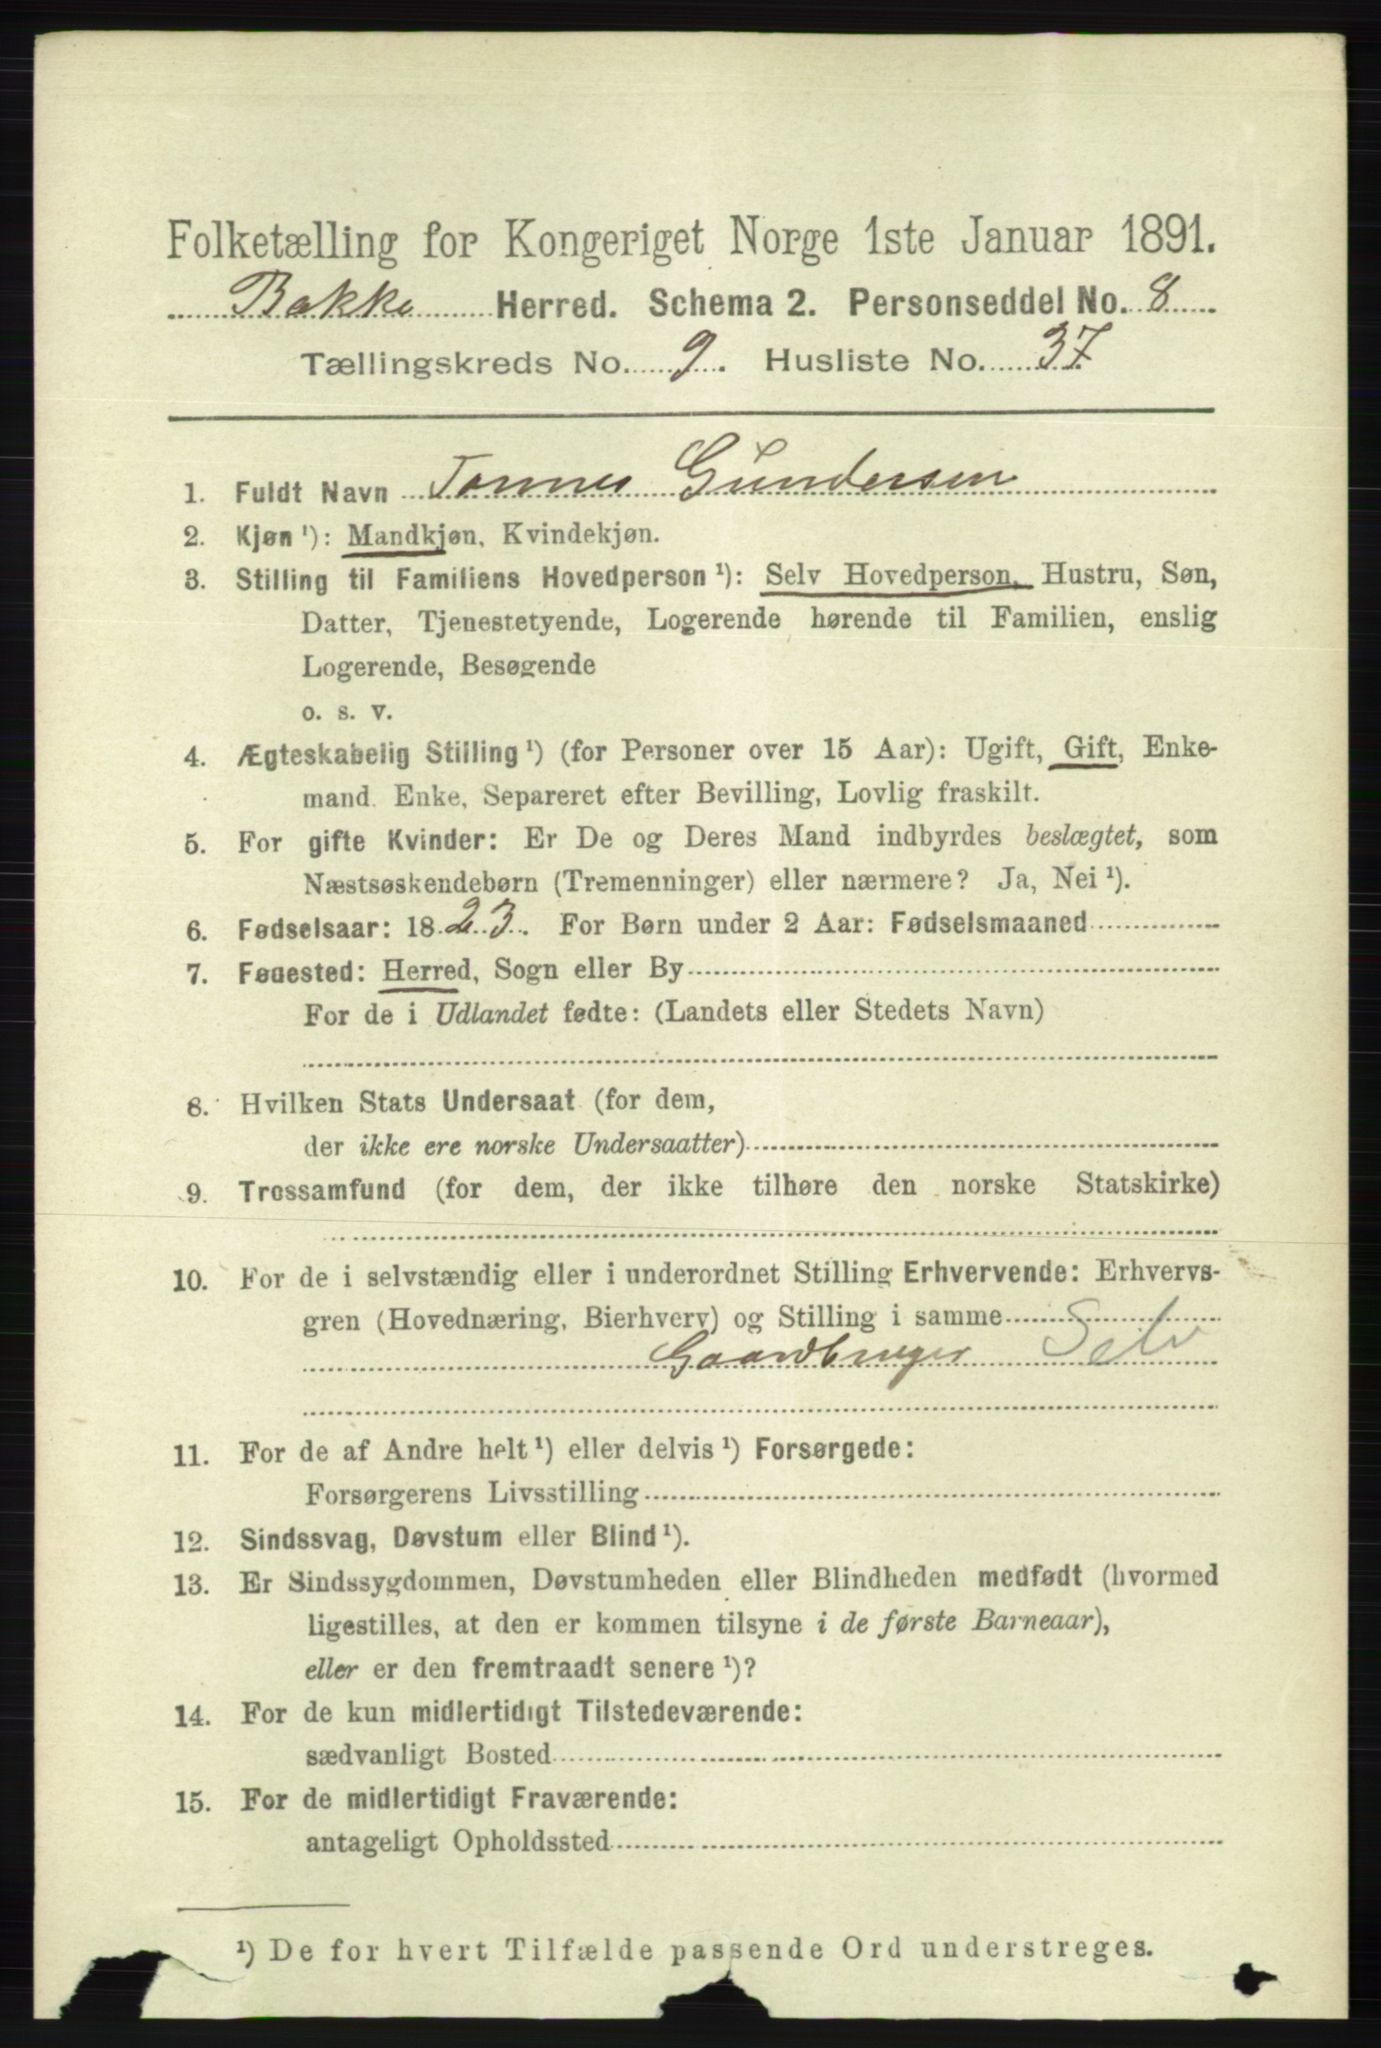 Folketælling for Kongeriget Norge 1ste Januar 1891.
Bakke Herred. Schema 2. Personseddel No. 8
Tællingskreds No. 9. Husliste No. 37
1. Fuldt Navn Tønnes Gundersen
2. Kjøn ¹): Mandkjøn, Kvindekjøn.
3. Stilling til Familiens Hovedperson ¹): Selv Hovedperson, Hustru, Søn,
Datter, Tjenestetyende, Logerende hørende til Familien, enslig
Logerende, Besøgende
o. s. v.
4. Ægteskabelig Stilling ¹) (for Personer over 15 Aar): Ugift, Gift, Enke-
mand. Enke, Separeret efter Bevilling, Lovlig fraskilt.
5. For gifte Kvinder: Er De og Deres Mand indbyrdes beslægtet, som
Næstsøskendebørn (Tremenninger) eller nærmere? Ja, Nei ¹).
6. Fødselsaar: 1823. For Børn under 2 Aar: Fødselsmaaned
7. Fødested: Herred, Sogn eller By
For de i Udlandet fødte: (Landets eller Stedets Navn)
8. Hvilken Stats Undersaat (for dem,
der ikke ere norske Undersaatter)
9. Trossamfund (for dem, der ikke tilhøre den norske Statskirke)
10. For de i selvstændig eller i underordnet Stilling Erhvervende: Erhvervs-
gren (Hovednæring, Bierhverv) og Stilling i samme
Gaardbruger Selv
11. For de af Andre helt ¹) eller delvis ¹) Forsørgede:
Forsørgerens Livsstilling
12. Sindssvag, Døvstum eller Blind ¹).
13. Er Sindssygdommen, Døvstumheden eller Blindheden medfødt (hvormed
ligestilles, at den er kommen tilsyne i de første Barneaar),
eller er den fremtraadt senere ¹)?
14. For de kun midlertidigt Tilstedeværende:
sædvanligt Bosted
15. For de midlertidigt Fraværende:
antageligt Opholdssted
¹) De for hvert Tilfælde passende Ord understreges.